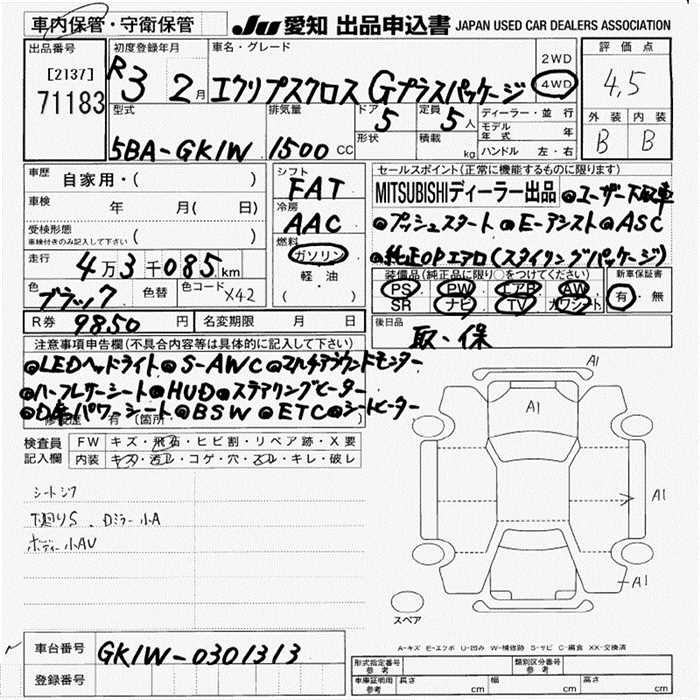 車内保管・守衛保管
JU 愛知 出品申込書 JAPAN USED CAR DEALERS ASSOCIATION
出品番号 初度登録年月 車名・グレード 評価点
[2137] R3 2月 エクリプスクロス Gプラスパッケージ 2WD 4WD 4,5
71183
型式 排気量 ドア 5 定員 5人 ディーラー・並行 外装 内装
形状 積載 kg モデル年式 年 B B
5BA-GK1W 1500CC ハンドル 左・右
車歴 自家用・( ) シフト セールスポイント(正常に機能するものに限ります)
FAT MITSUBISHIディーラー出品 ◎ユーザー下取車
車検 年 月( 日) 冷房 ◎プッシュスタート ◎E-アシスト ◎ASC
受検形態 AAC
車検付きのみ記入して下さい ( ) 燃料 ◎純正OPエアロ(スタイリングパッケージ)
走行 4万3千085km ガソリン 装備品(純正品に限り○をつけてください) 新車保証書
軽・油 PS PW エアB AW 有・無
色 ブラック 色替 色コード X42 ( ) SR ナビ TV カワシート
R券 9850円 名変期限 月 日 後日品
取・保
注意事項申告欄(不具合内容等は具体的に記入して下さい)
◎LEDヘッドライト ◎S-AWC ◎マルチアラウンドモニター
◎ハーフレザーシート ◎HUD ◎ステアリングヒーター
◎D席パワーシート ◎BSW ◎ETC ◎シートヒーター
修復歴 有 (箇所
検査員 FW キズ・飛石・ヒビ割・リペア跡・X要
記入欄 内装 キズ・汚レ・コゲ・穴・スレ・キレ・破レ
シートシワ
下廻りS、Dミラー小A
ボディー小AU
A1
A1
A1
A1
スペア
A-キズ E-エクボ U-凹み W-補修跡 S-サビ C-腐食 XX-交換済
車台番号 GK1W-0301313
登録番号
形式指定番号 参考 類別区分番号 参考
車庫証明用 参考 長さ cm 幅 cm 高さ cm